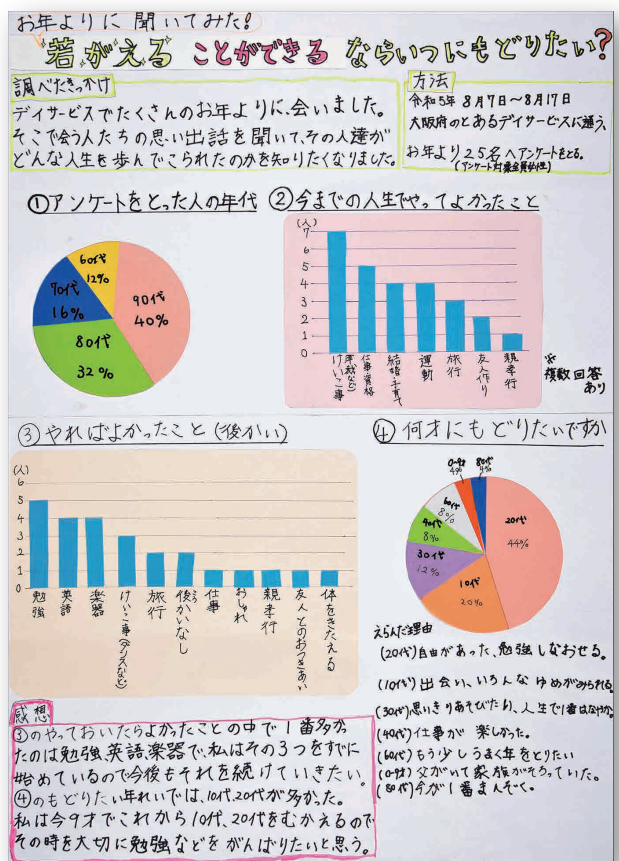 お年よりに聞いてみた!
若がえることができるならいつにもどりたい?
調べたきっかけ
デイサービスでたくさんのお年よりに、会いました。
そこで会う人たちの思い出話を聞いて、その人達が
どんな人生を歩んでこられたのかを知りたくなりました。
方法
令和5年 8月7日〜8月17日
大阪府のとあるデイサービスに通う、
お年より25名へアンケートをとる。
(アンケート対象全員女性)
①アンケートをとった人の年代
60代
12%
70代
16%
80代
32%
90代
40%
②今までの人生でやってよかったこと
(人)
7
6
5
4
3
2
1
0
けいこ事
仕事・資格
結婚・子育て
運動
旅行
友人作り
親孝行
※
複数回答
あり
③やればよかったこと(後かい)
(人)
6
5
4
3
2
1
0
勉強
英語
楽器
けいこ事(ダンスなど)
旅行
後かいなし
仕事
おしゃれ
親孝行
友人とのおつきあい
体をきたえる
④何才にもどりたいですか
0〜9才
4%
80代
4%
60代
8%
40代
8%
30代
12%
10代
20%
20代
44%
えらんだ理由
(20代)自由があった、勉強しなおせる。
(10代)出会い、いろんなゆめがみられる。
(30代)思いきりあそびたい、人生で1番はなやか。
(40代)仕事が楽しかった。
(60代)もう少しうまく年をとりたい
(0〜9才)父がいて家族がそろっていた。
(80代)今が1番まんぞく。
感想
③のやっておいたらよかったことの中で1番多かっ
たのは勉強、英語、楽器で、私はその3つをすでに
始めているので今後もそれを続けていきたい。
④のもどりたい年れいでは、10代、20代が多かった。
私は今9才でこれから10代、20代をむかえるので
その時を大切に勉強などをがんばりたいと思う。